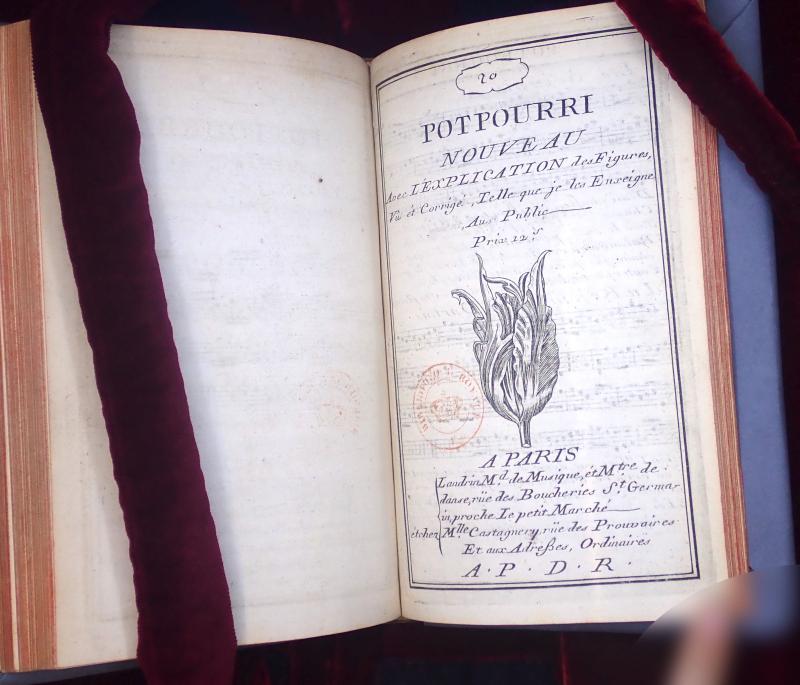 20
POTPOURRI
NOUVEAU
Avec L'EXPLICATION des Figures,
Vû et Corrigé, Telle que je les Enseigne
Aux Public
Prix 12.ˢ
A PARIS
Landrin M.ᵈ de Musique, et M.ᵗʳᵉ de
danse, rüe des Boucheries S.ᵗ Germa-
in, proche Le petit Marché
et chez M.ˡˡᵉ Castagnery, rüe des Prouvaires
Et aux Adreßes, Ordinaires
A. P. D. R.